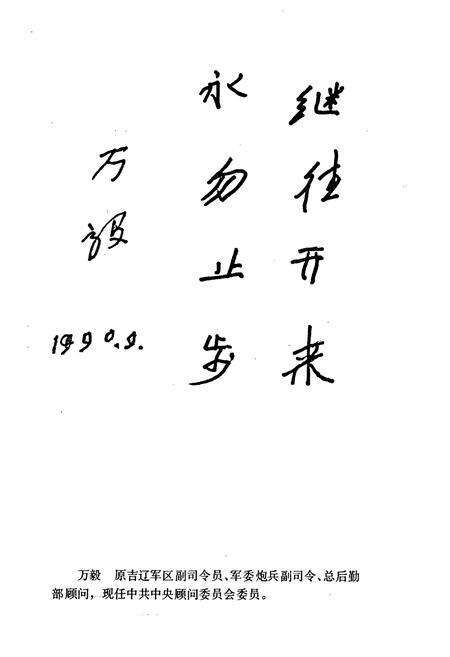 继往开来
永勿止步
万毅
1990.9.
万毅　原吉辽军区副司令员、军委炮兵副司令、总后勤
部顾问，现任中共中央顾问委员会委员。